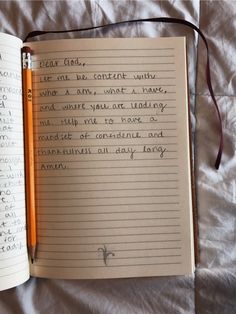 Dear God,
Let me be content with
who i am, what i have,
and where you are leading
me. Help me to have a
mindset of confidence and
thankfulness all day long.
Amen.